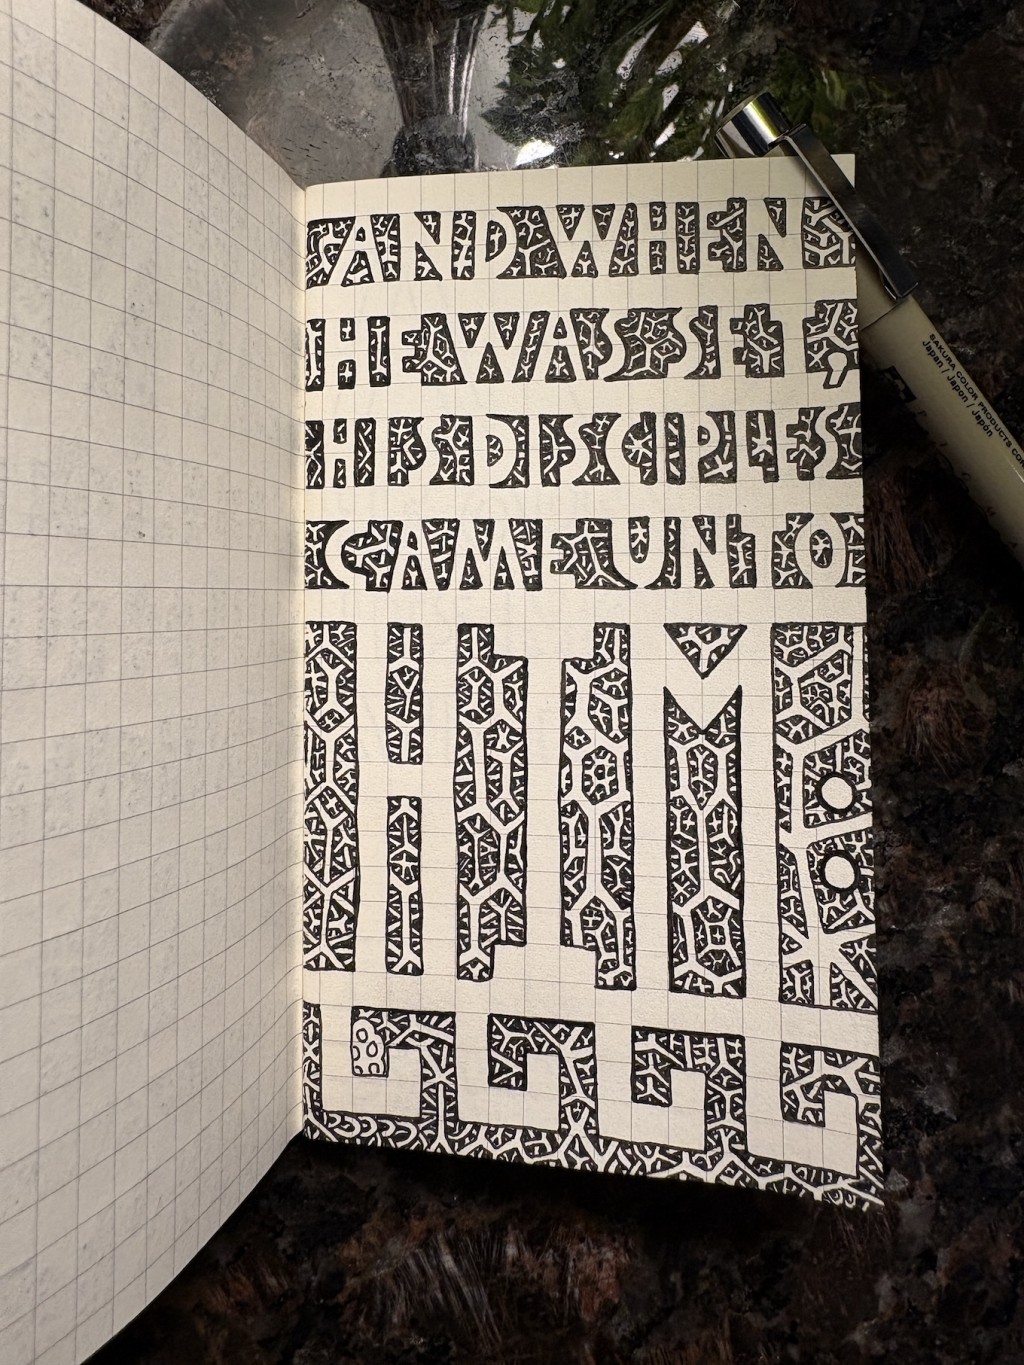 AND WHEN
HE WAS SET,
HIS DISCIPLES
CAME UNTO
HIM:
SAKURA COLOR PRODUCTS COR
Japan / Japon / Japón